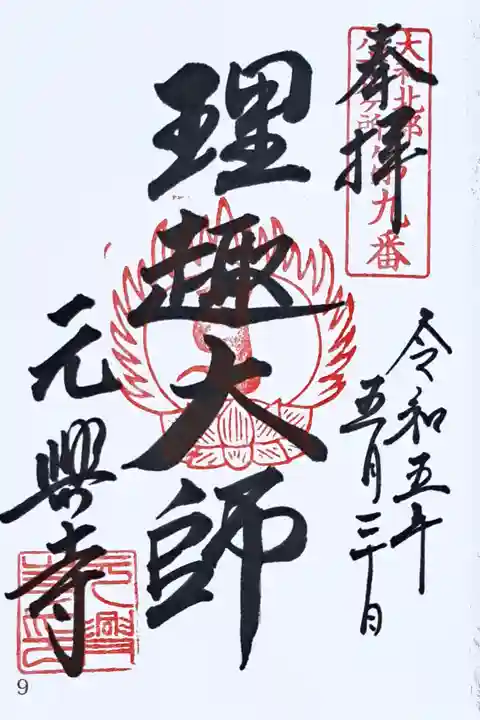 奉拝
大和北部
八十八ヶ所第九番
令和五年
五月三十日
理趣大師
元興寺
9